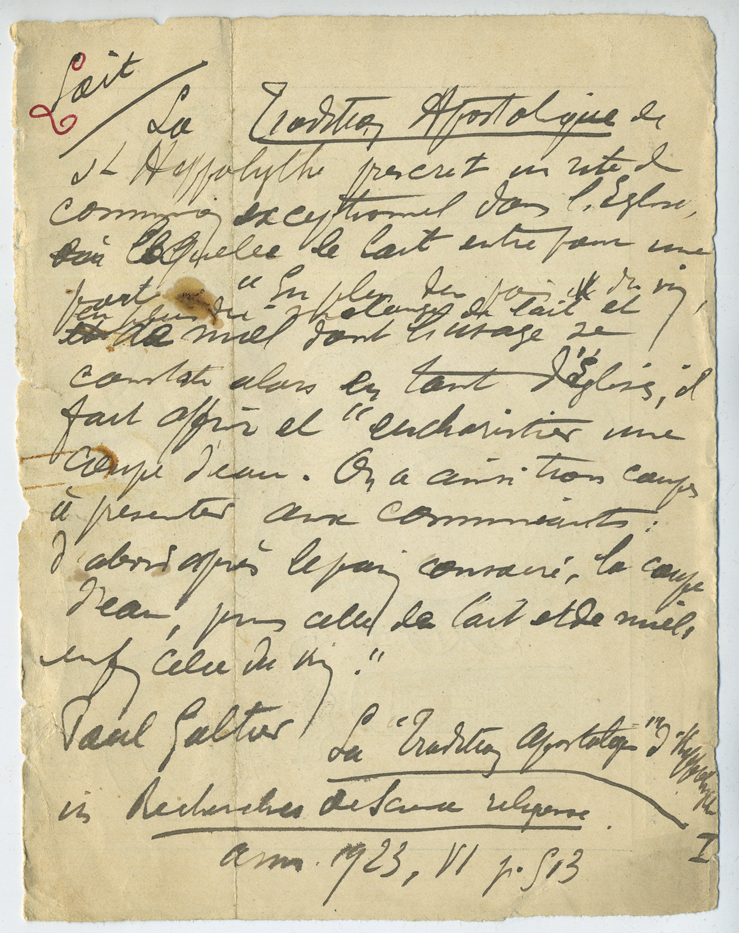 Lait
La Tradition Apostolique de
St Hyppolythe prescrit un rite de
communion exceptionnel dans l'Eglise,
dans lequelle le lait entre pour une
part. "En plus du pain et du vin,
en plus du mélange de lait et
de miel dont l'usage se
constate alors en tant d'églises, il
fait offrir et "eucharistier une
coupe d'eau. On a ainsi trois coupes
à presenter aux communiants :
d'abord après le pain consacré, la coupe
d'eau, puis celle de lait et de miel,
enfin celle du vin."
Paul Galtier La "Tradition Apostolique" d'Hyppolyte
in Recherches de Science religieuse.
ann. 1923, VI p. 513
I